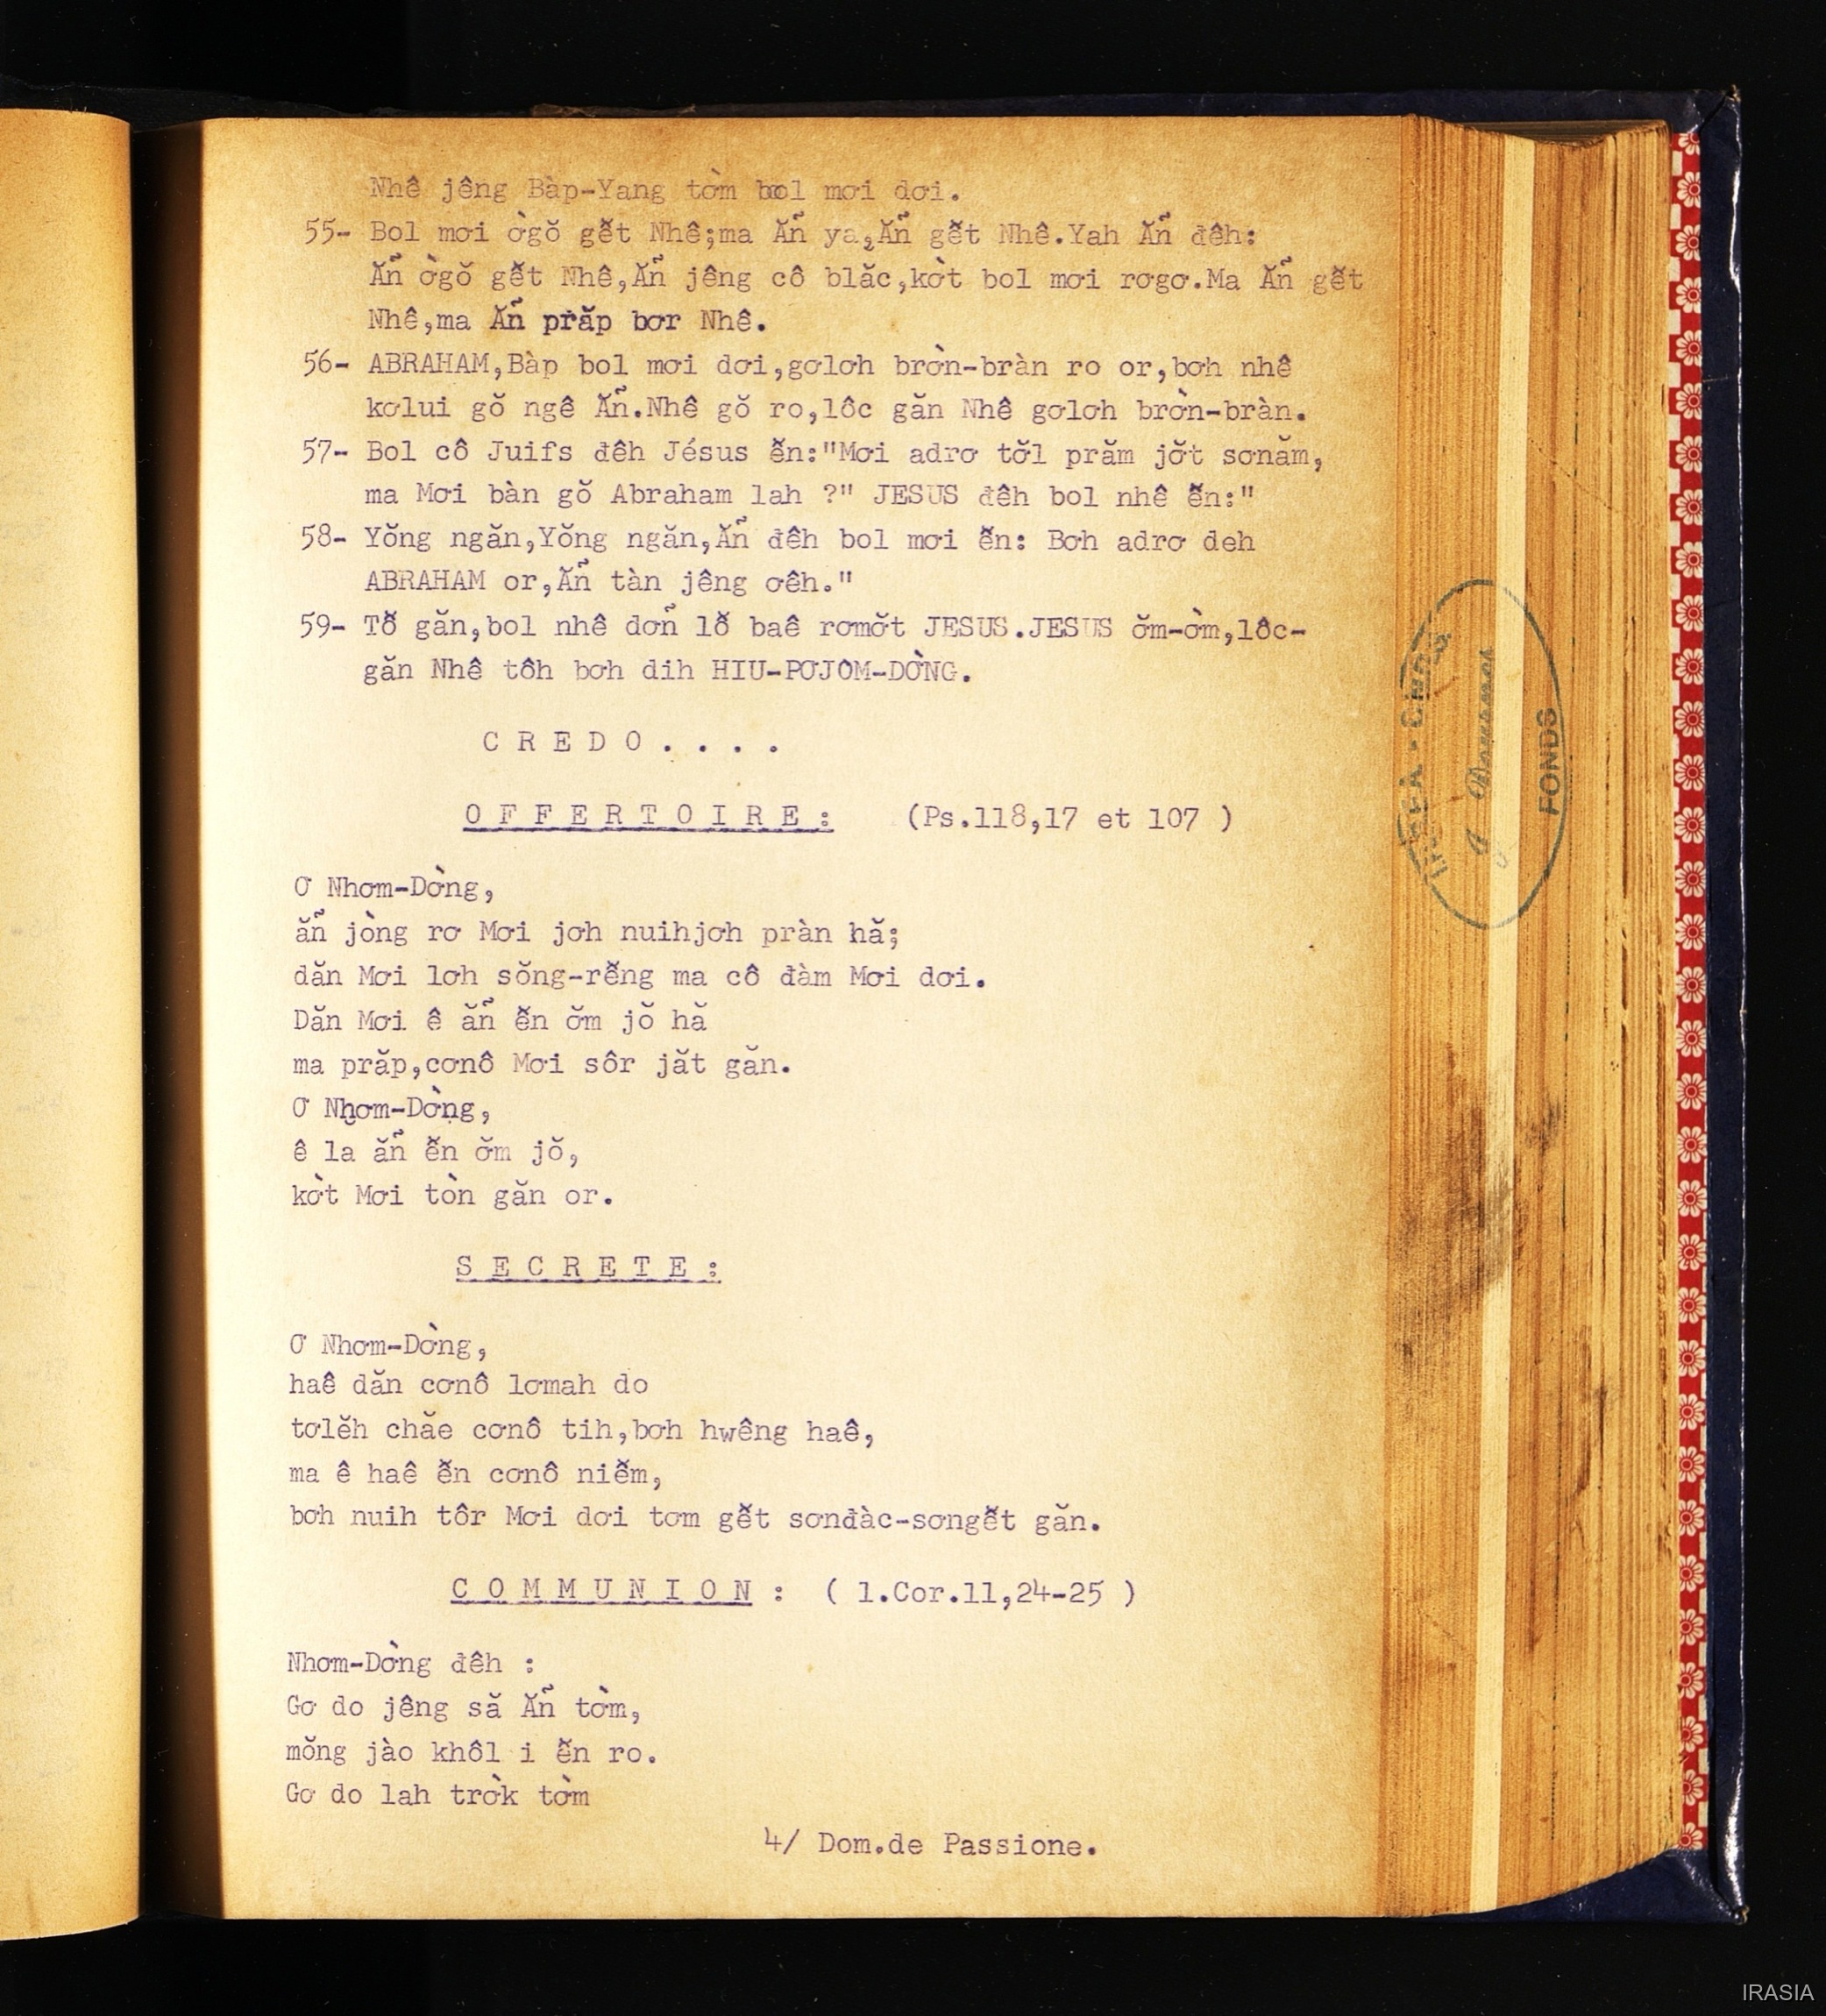 Nhê jêng Bàp-Yang tờm bol mơi dơi.
55- Bol mơi ờgŏ gễt Nhê;ma Ẵn ya,Ẵn gễt Nhê.Yah Ẵn đêh:
Ẵn ờgŏ gễt Nhê,Ẵn jêng cô blăc,kờt bol mơi rơgơ.Ma Ẵn gễt
Nhê,ma Ẵn prăp bơr Nhê.
56- ABRAHAM,Bàp bol mơi dơi,gơlơh brờn-bràn ro or,bơh nhê
kơlui gŏ ngê Ẵn.Nhê gŏ ro,lôc găn Nhê gơlơh brờn-bràn.
57- Bol cô Juifs đêh Jésus ễn:"Mơi adrơ tơ̆l prăm jơ̆t sơnăm,
ma Mơi bàn gŏ Abraham lah ?" JESUS đêh bol nhê ễn:"
58- Yŏng ngăn,Yŏng ngăn,Ẵn đêh bol mơi ễn: Bơh adrơ deh
ABRAHAM or,Ẵn tàn jêng ơêh."
59- Tỗ găn,bol nhê dơñ lỗ baê rơmơ̆t JESUS.JESUS ơ̆m-ờm,lôc-
găn Nhê tôh bơh dih HIU-PƠJOM-DỜNG.
C R E D O . . . .
O F F E R T O I R E :    (Ps.118,17 et 107 )
Ơ Nhơm-Dờng,
ẵn jòng rơ Mơi jơh nuihjơh pràn hă;
dăn Mơi lơh sŏng-rễng ma cô đàm Mơi dơi.
Dăn Mơi ê ẵn ễn ơ̆m jŏ hă
ma prăp,cơnô Mơi sôr jăt găn.
Ơ Nhơm-Dờng,
ê la ẵn ễn ơ̆m jŏ,
kờt Mơi tòn găn or.
S E C R E T E :
Ơ Nhơm-Dờng,
haê dăn cơnô lơmah do
tơlĕh chăe cơnô tih,bơh hwêng haê,
ma ê haê ễn cơnô niễm,
bơh nuih tôr Mơi dơi tơm gễt sơnđàc-sơngễt găn.
C O M M U N I O N :  ( 1.Cor.11,24-25 )
Nhơm-Dờng đêh :
Gơ do jêng să Ẵn tờm,
mŏng jào khôl i ễn ro.
Gơ do lah trờk tờm
4/ Dom.de Passione.
FONDS
IRASIA